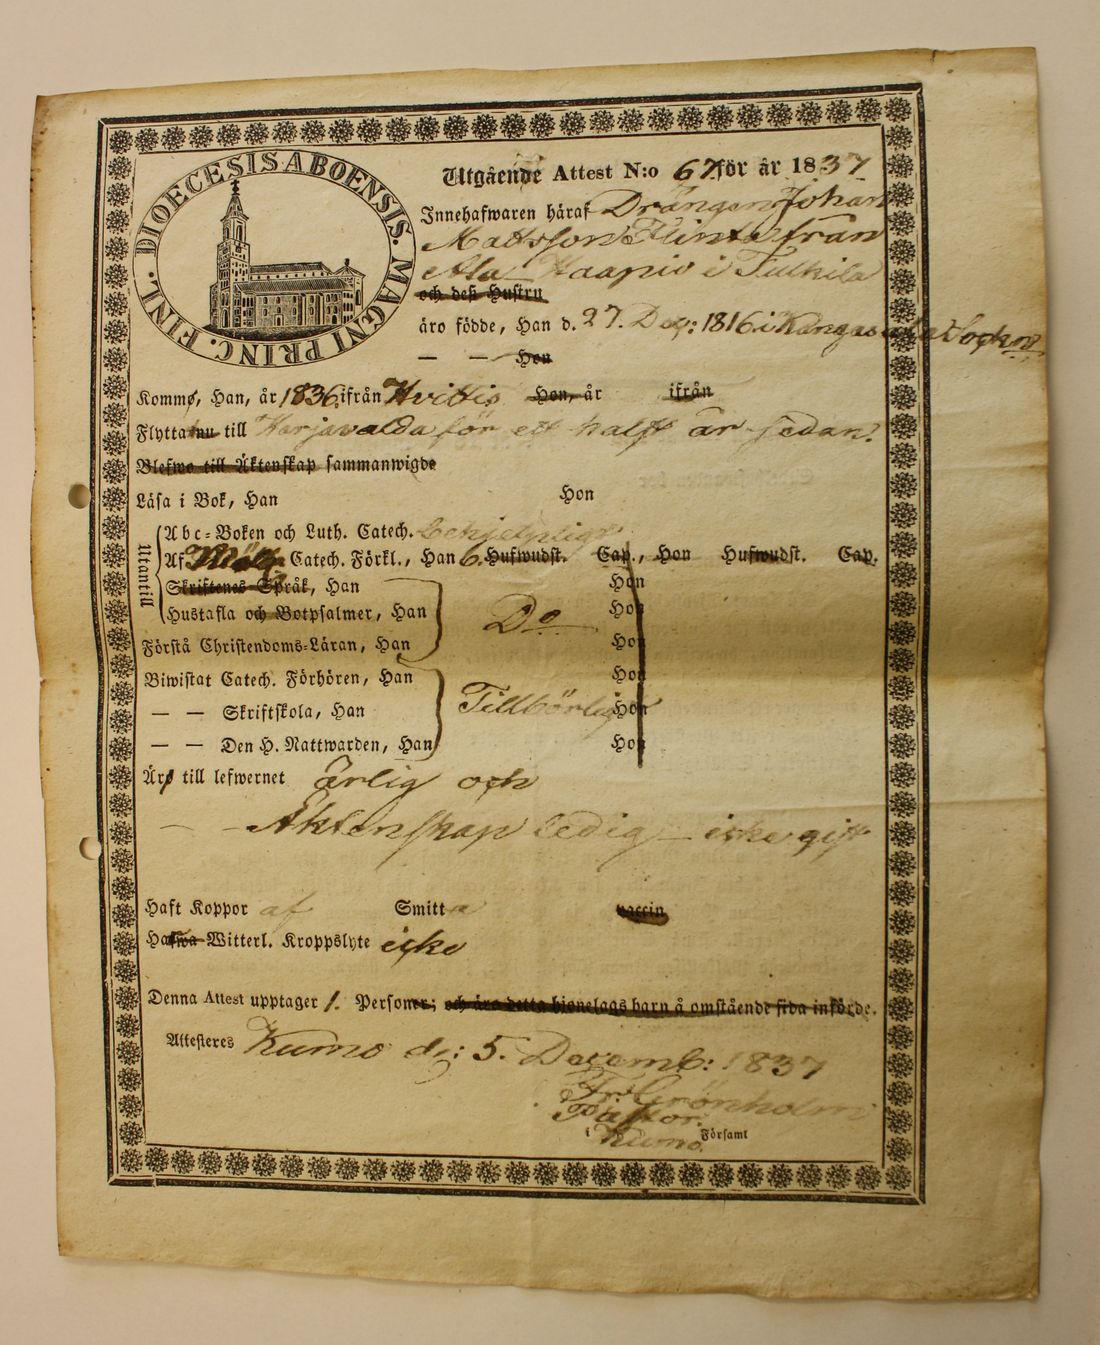 DIOECESIS ABOENSIS. MAGNI PRINC. FINL.
Utgående Attest N:o 67 för år 1837
Innehafwaren häraf Drängen Johan
Mattsson Flinta från
Ala Haapio i Tulkila
och deß Hustru
äro födde, Han d. 27. Dec: 1816 i Kangasala Sockn
— — Hon
Komme, Han, år 1836 ifrån Hvittis Hon, år ifrån
Flytta nu till Harjavalda för ett halft år sedan.
Blefwo till Äktenskap sammanwigde
Läsa i Bok, Han Hon
Utantill
Abc-Boken och Luth. Catech. behjelpligt
Af Catech. Förkl., Han 6. Hufwudst. Cap., Hon Hufwudst. Cap.
Skriftenes Språk, Han Hon
Hustafla och Botpsalmer, Han Do Hon
Förstå Christendoms-Läran, Han Hon
Biwistat Catech. Förhören, Han Hon
— — Skriftskola, Han Tillbörlig Hon
— — Den H. Nattwarden, Han Hon
Äro till lefwernet ärlig och
— — Äktenskap ledig — icke gift
Haft Koppor af Smitta vaccin
Hafwa Witterl. Kroppslyte icke
Denna Attest upptager 1. Personer; och äro detta hjonelags barn å omstående sida införde.
Attesteres Kumo d.: 5. Decemb: 1837
Fr. Grönholm
Pastor.
i Kumo. Församl